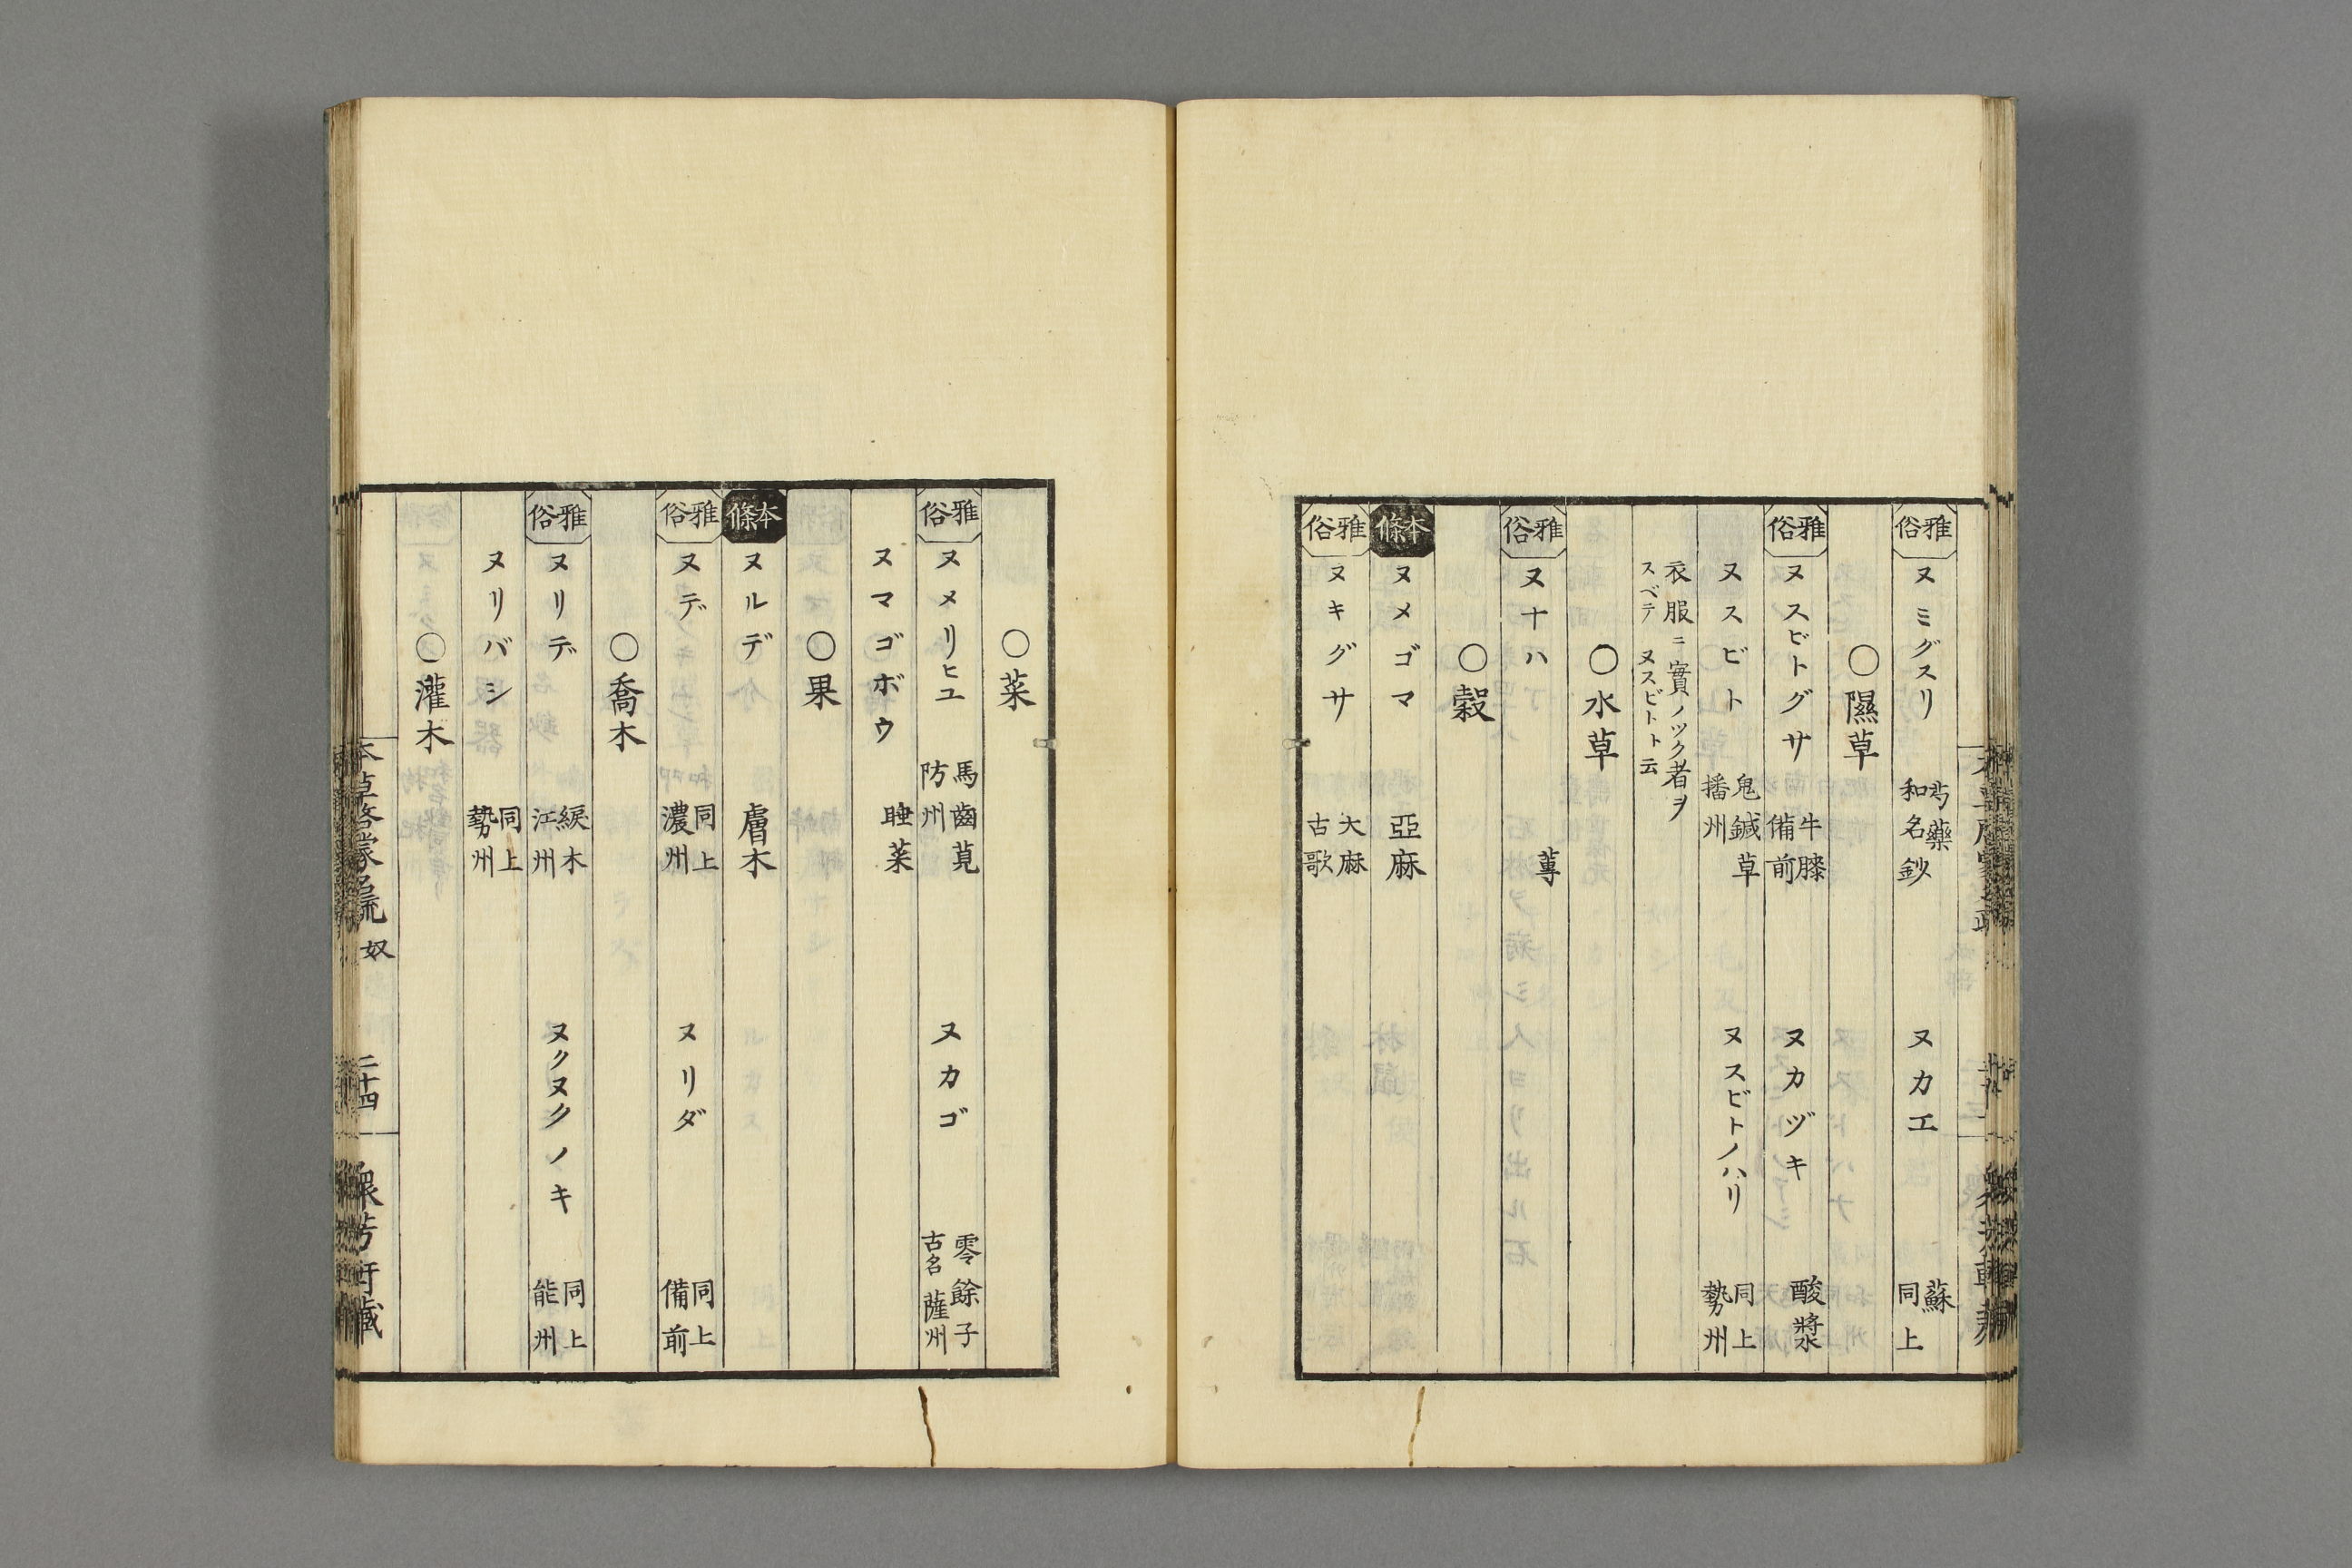 雅俗 ヌミグスリ 芍藥 和名鈔 ヌカエ 蘇 同上
○隰草
雅俗 ヌスビトグサ 牛膝 備前 ヌカヅキ 酸漿
ヌスビト 鬼鍼草 播州 ヌスビトノハリ 同上 勢州
衣服ニ實ノツク者ヲ
スベテヌスビトト云
○水草
雅俗 ヌナハ 蓴
○穀
本條 ヌメゴマ 亞麻
雅俗 ヌキグサ 大麻 古歌
○菜
雅俗 ヌメリヒユ 馬齒莧 防州 ヌカゴ 零餘子 古名 薩州
ヌマゴボウ 睡菜
○果
本條 ヌルデ 膚木
雅俗 ヌデ 同上 濃州 ヌリダ 同上 備前
○喬木
雅俗 ヌリデ 綟木 江州 ヌクヌクノキ 同上 能州
ヌリバシ 同上 勢州
○灌木
奴
二十四